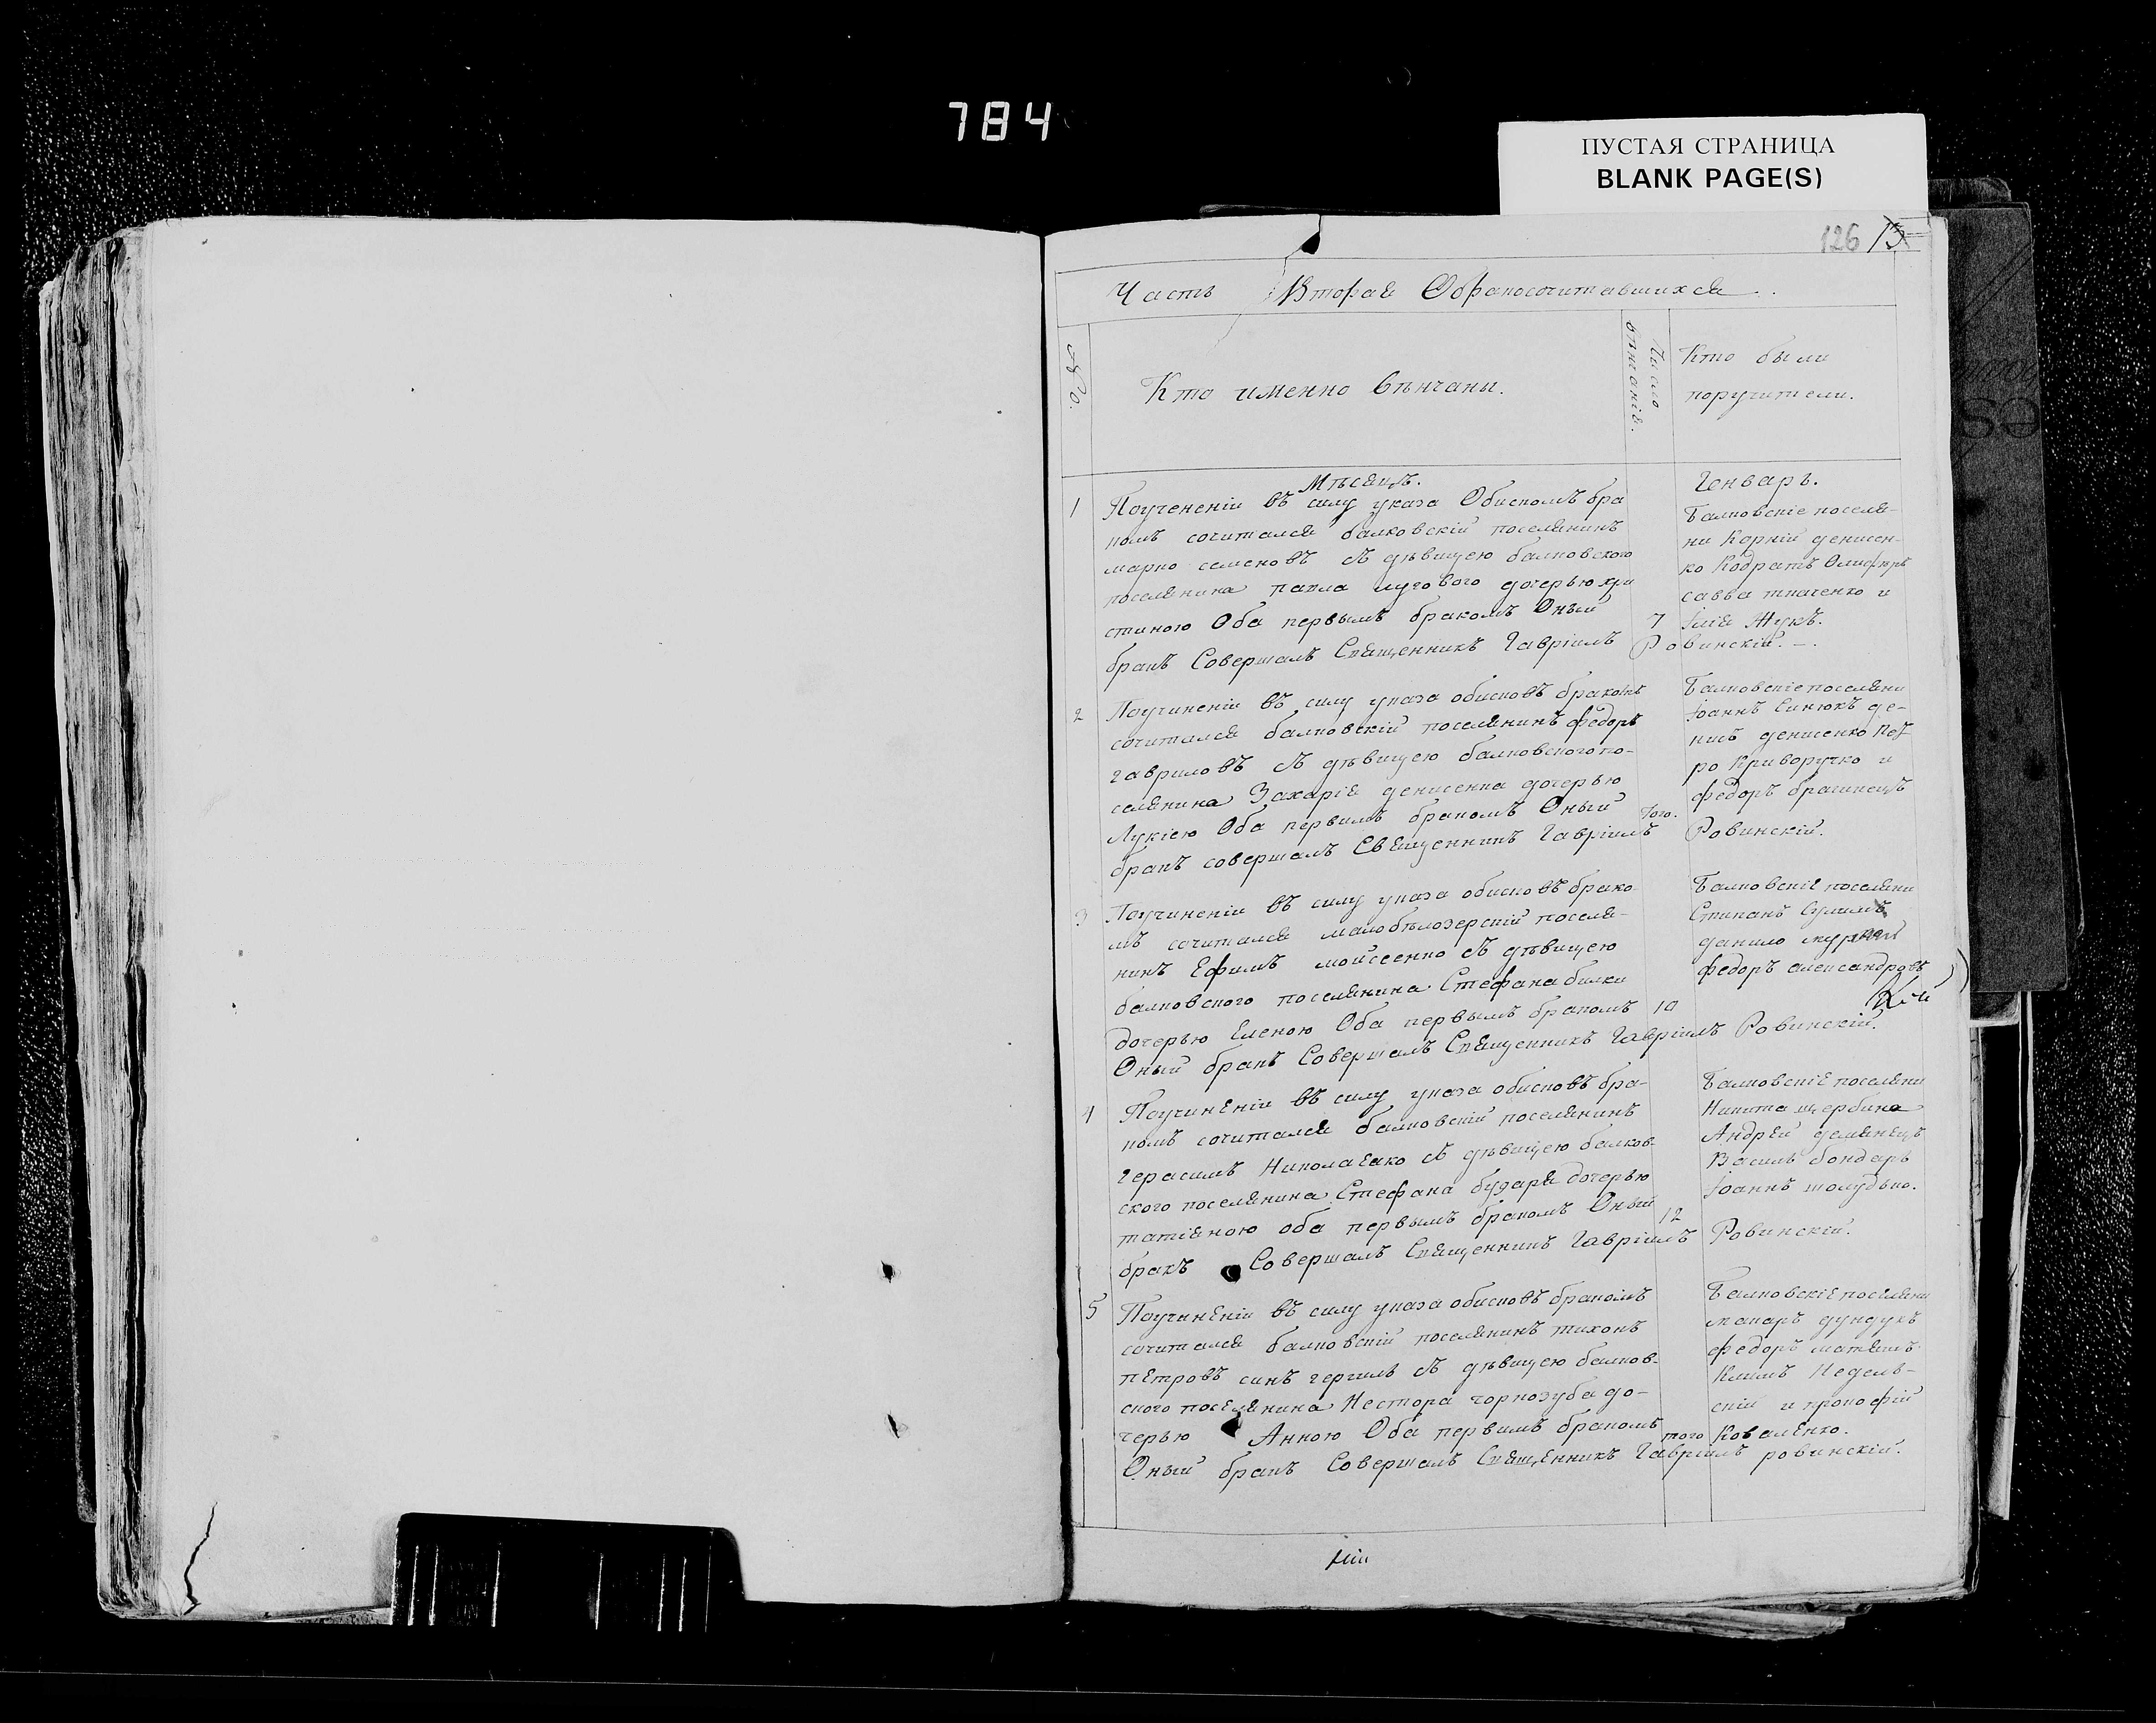 784
ПУСТАЯ СТРАНИЦА
BLANK PAGE(S)
126
Часть Вторая Обракосочитавшихся.
№.
Кто именно вѣнчаны.
Число вѣнчанія.
Кто были
поручители.
Мѣсяцъ. Генварь.
1 Поучененіи въ силу указа Обискомъ бра
комъ сочитался балковскій поселянинъ
марко семеновъ съ дѣвицею балковского
поселянина павла лугового дочерью хри
стиною Оба первымъ бракомъ Оный 7
бракъ Совершалъ Священникъ Гавріилъ Ровинскій.
Балковскіе поселя-
ни Корній денисен-
ко Кодратъ
савва ткаченко и
Ілія Жукъ.
2 Поучиненіи въ силу указа обисковъ бракомъ
сочитался балковскій поселянинъ федоръ
гавриловъ съ дѣвицею балковского по-
селянина Захарія денисенка дочерью
Лукіею Оба первымъ бракомъ Оный того.
бракъ совершалъ Священникъ Гавріилъ Ровинскій.
Балковскіе поселяни
Іоаннъ Синюкъ де-
нисъ денисенко Пет
ро Криворучко и
федоръ брагинецъ
3 Поучиненіи въ силу указа обисковъ брако
мъ сочитался малобѣлозерскій поселя-
нинъ Ефимъ мойсеенко съ дѣвицею
балковского поселянина Стефана билки
дочерью Еленою Оба первымъ бракомъ 10
Оный бракъ Совершалъ Священникъ Гавріилъ Ровинскій.
Балковскіе поселяни
Стипанъ
данило
федоръ александровъ
4 Поучиненіи въ силу указа обисковъ бра-
комъ сочитался балковскій поселянинъ
герасимъ Николаенко съ дѣвицею балков-
ского поселянина Стефана бударя дочерью
татіяною оба первымъ бракомъ Оный 12
бракъ Совершалъ Священникъ Гавріилъ Ровинскій.
Балковскіе поселяни
Никита щербина
Андрей демянецъ
Василь бондарь
Іоаннъ шолудько.
5 Поучиненіи въ силу указа обисковъ бракомъ
сочитался балковскій поселянинъ тихонъ
Петровъ синъ съ дѣвицею балков-
ского поселянина Нестора чорнозуба до-
черью Анною Оба первимъ бракомъ того
Оный бракъ Совершалъ Священникъ Гавріилъ ровинскій.
Балковскіе поселяни
макаръ дундукъ
федоръ
Климъ Недель-
скій и прокофій
Коваленко.